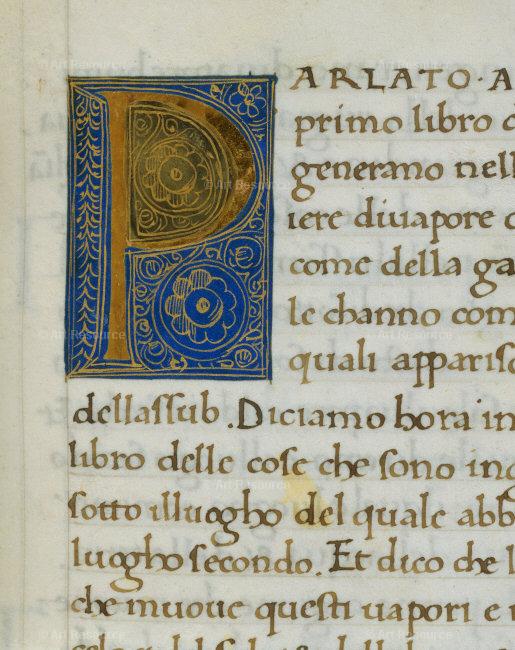 PARLATO · A
primo libro d
generano nell
iere diuapore
come della ga
le channo com
quali appariſc
dellaſſub. Diciamo hora in
libro delle coſe che ſono ing
ſotto illuogho del quale abb
luogho ſecondo. Et dico che l
che muoue queſti uapori e